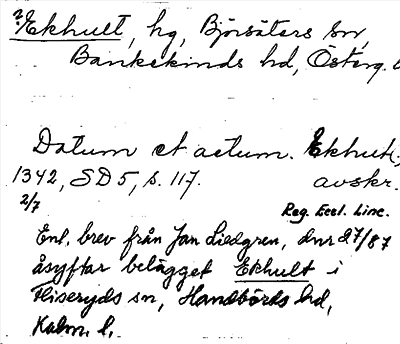 ?Ekhult, hg, Björsäters sn,
Bankekinds hd, Österg. l
Datum et actum. Ekhult,
1342, SD 5, s. 117. avskr.
2/7
Reg. Eccl. Linc.
Enl. brev från Jan Liedgren, dnr 27/87
åsyftar belägget Ekhult i
Fliseryds sn, Handbörds hd,
Kalm. l.